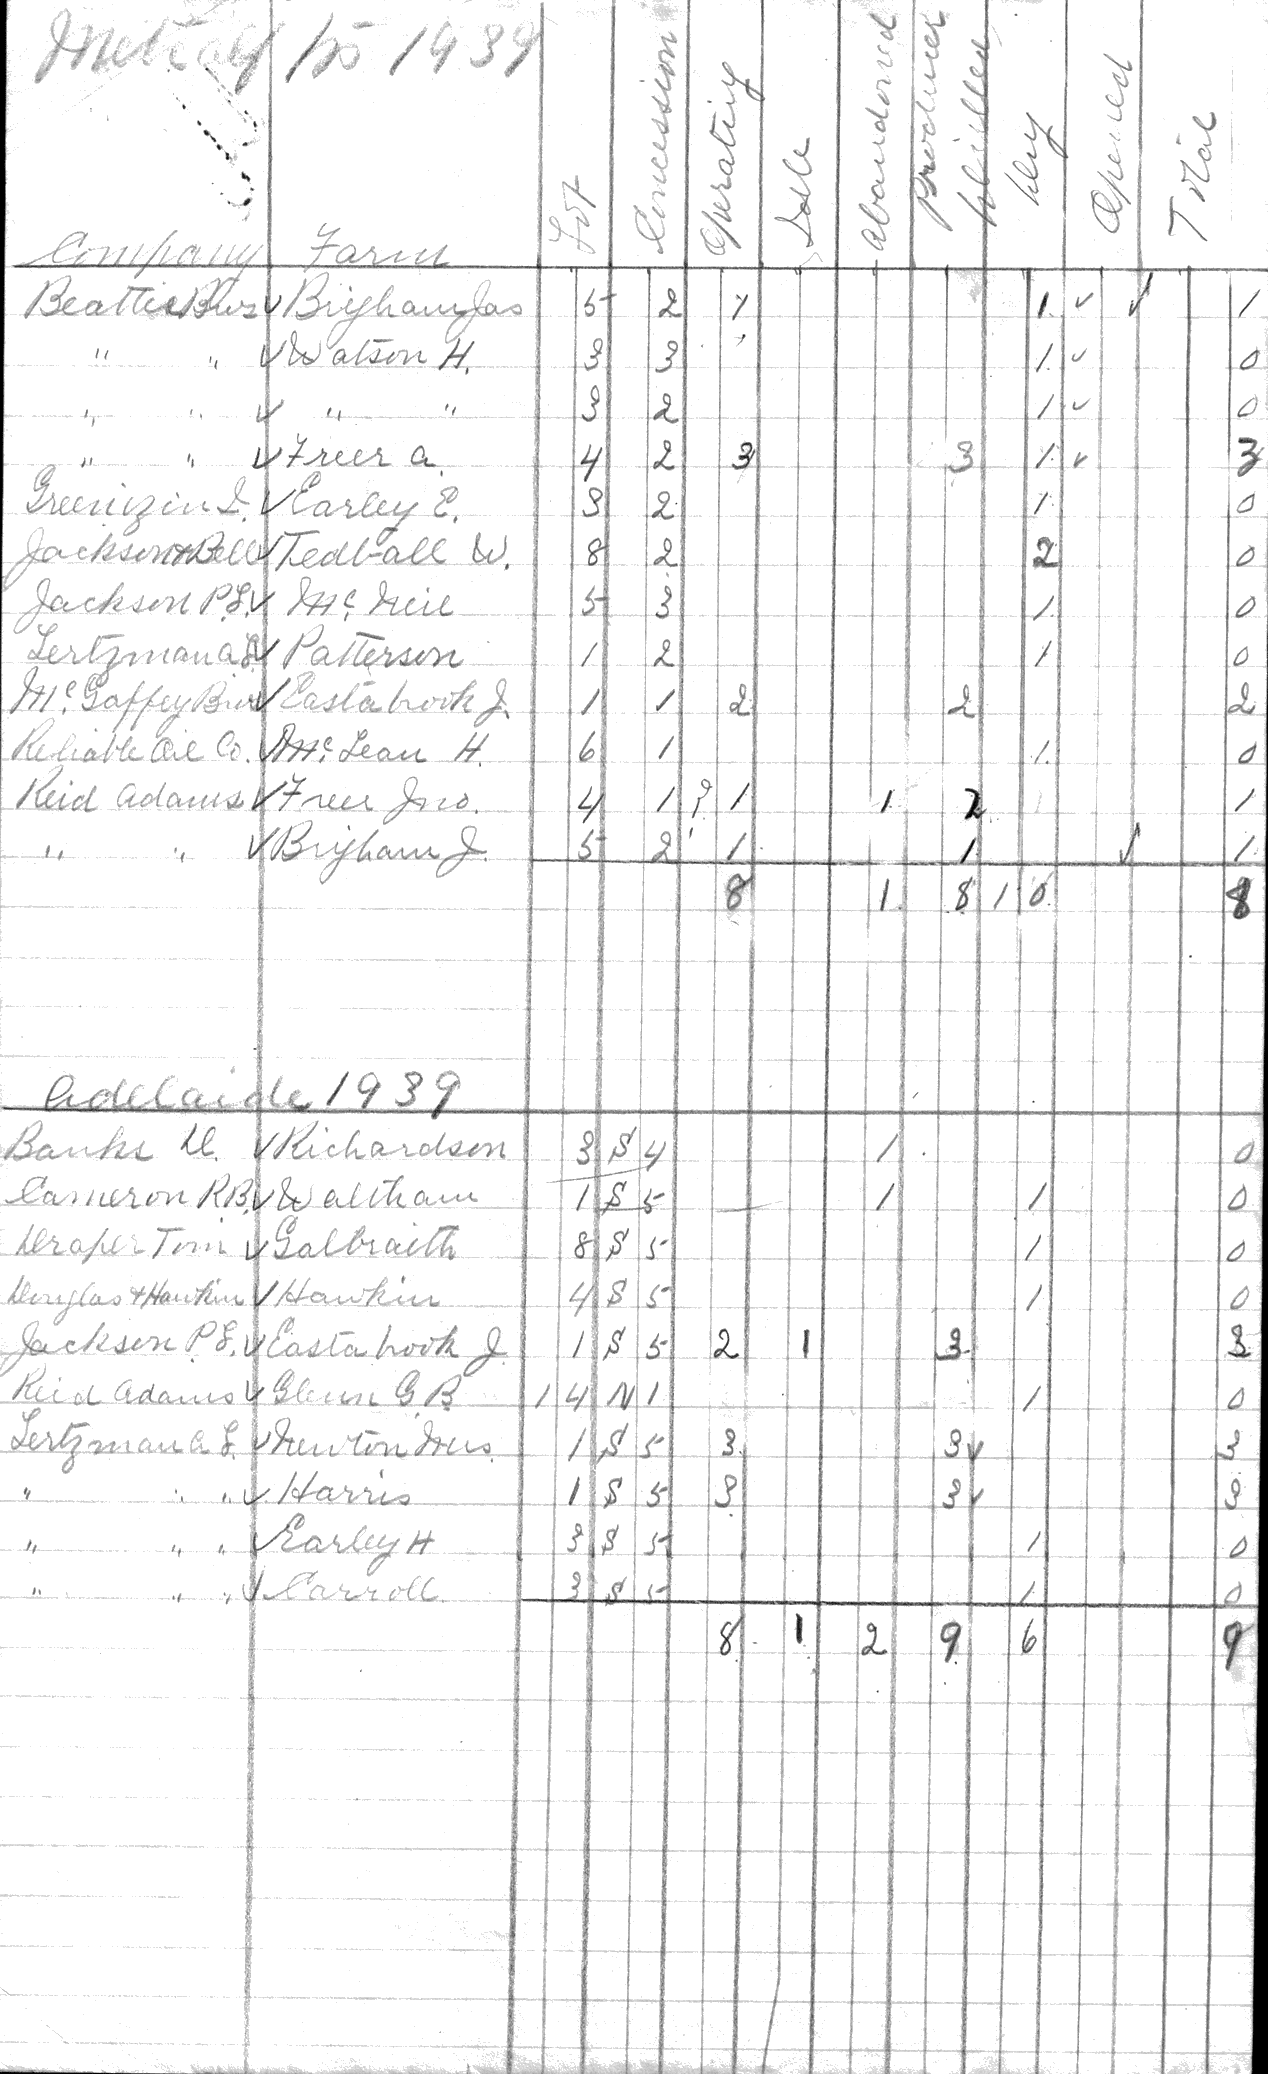 Metcalf 1939
Company Farm Lot Concession Operating Idle Abandoned Producer Drilled Dry Opened Total
Beattie Bros ✓ Brigham Jas 5 2 1 1 ✓ ✓ 1
" " ✓ Watson H. 3 3 1 ✓ 0
" " ✓ " " 3 2 1 ✓ 0
" " ✓ Freer A. 4 2 3 3 1 ✓ 3
Greenizen D. ✓ Earley E. 3 2 1 0
Jackson & Bell ✓ Tedball W. 8 2 2 0
Jackson P.L. ✓ McNeil 5 3 1 0
Lertzman A.L. ✓ Patterson 1 2 1 0
McGaffey Bros ✓ Eastabrook J. 1 1 2 2 2
Reliable Oil Co. ✓ McLean H. 6 1 1 0
Reid Adams ✓ Freer Jno. 4 1 ? 1 1 2 1
" " ✓ Brigham J. 5 2 1 1 ✓ 1
8 1 8 10 8
Adelaide 1939
Banks D. ✓ Richardson 3 S 4 1 0
Cameron R.B. ✓ Waltham 1 S 5 1 1 0
Draper Tom ✓ Galbraith 8 S 5 1 0
Douglas & Hawkin ✓ Hawkin 4 S 5 1 0
Jackson P.L. ✓ Eastabrook J 1 S 5 2 1 3 3
Reid Adams ✓ Glenn G.B. 14 N 1 1 0
Lertzman A.L. ✓ Newton Mrs. 1 S 5 3 3 ✓ 3
" " " ✓ Harris 1 S 5 3 3 ✓ 3
" " " ✓ Earley H 3 S 5 1 0
" " " ✓ Carroll 3 S 5 1 0
8 1 2 9 6 9